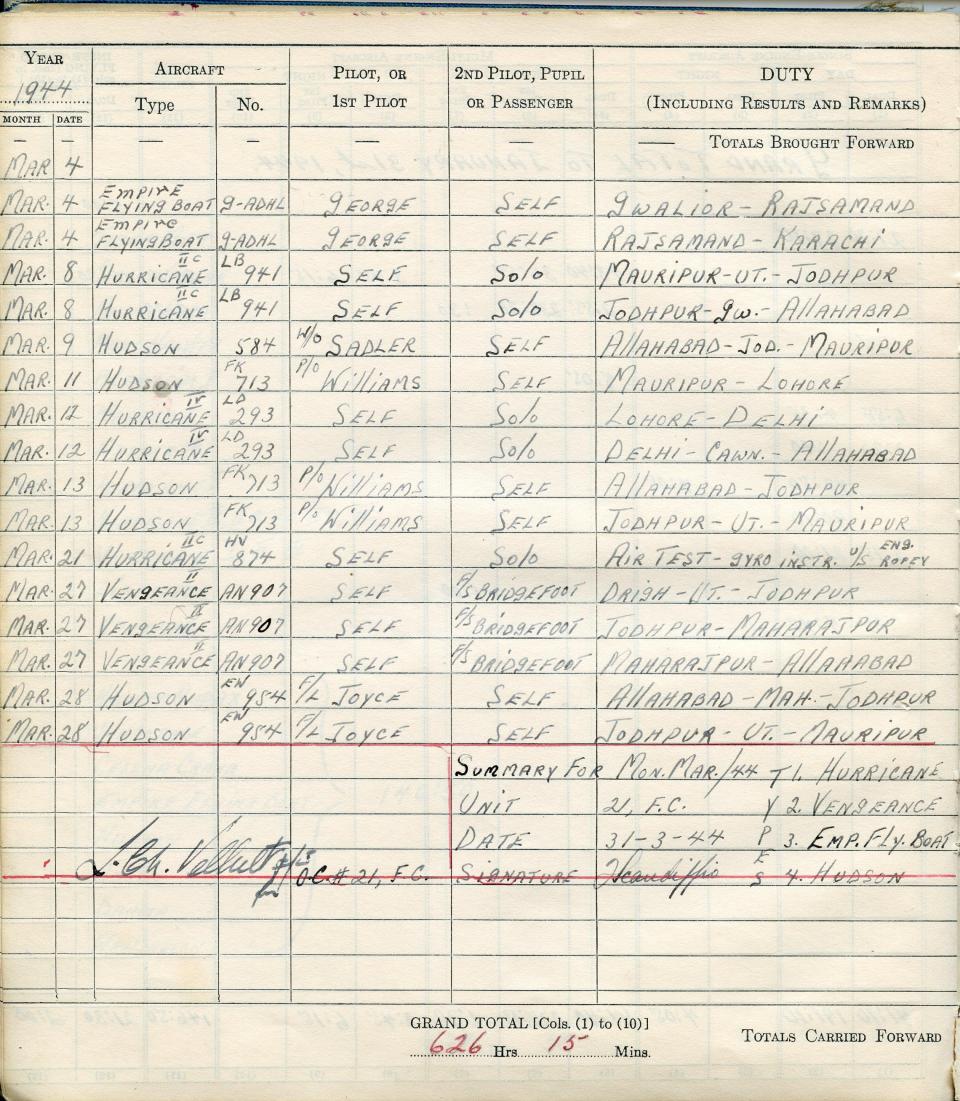 YEAR AIRCRAFT PILOT, OR 2ND PILOT, PUPIL DUTY
1944 Type No. 1ST PILOT OR PASSENGER (INCLUDING RESULTS AND REMARKS)
MONTH DATE
— — — — — — — TOTALS BROUGHT FORWARD
MAR 4
MAR. 4 EMPIRE FLYING BOAT G-ADHL GEORGE SELF GWALIOR - RAJSAMAND
MAR. 4 EMPIRE FLYING BOAT G-ADHL GEORGE SELF RAJSAMAND - KARACHI
MAR. 8 HURRICANE IIC LB 941 SELF SOLO MAURIPUR-UT.- JODHPUR
MAR. 8 HURRICANE IIC LB 941 SELF SOLO JODHPUR-GW.- ALLAHABAD
MAR. 9 HUDSON 584 W/O SADLER SELF ALLAHABAD-JOD.- MAURIPUR
MAR. 11 HUDSON FK 713 P/O WILLIAMS SELF MAURIPUR - LOHORE
MAR. 12 HURRICANE IV LD 293 SELF SOLO LOHORE - DELHI
MAR. 12 HURRICANE IV LD 293 SELF SOLO DELHI - CAWN. - ALLAHABAD
MAR. 13 HUDSON FK 713 P/O WILLIAMS SELF ALLAHABAD - JODHPUR
MAR. 13 HUDSON FK 713 P/O WILLIAMS SELF JODHPUR - UT. - MAURIPUR
MAR. 21 HURRICANE IIC HV 874 SELF SOLO AIR TEST - GYRO INSTR. U/S ENG. ROPEY
MAR. 27 VENGEANCE II AN907 SELF F/S BRIDGEFOOT DRIGH - UT. - JODHPUR
MAR. 27 VENGEANCE II AN907 SELF F/S BRIDGEFOOT JODHPUR - MAHARAJPUR
MAR. 27 VENGEANCE II AN907 SELF F/S BRIDGEFOOT MAHARAJPUR - ALLAHABAD
MAR. 28 HUDSON EW 954 F/L JOYCE SELF ALLAHABAD - MAH. - JODHPUR
MAR. 28 HUDSON EW 954 F/L JOYCE SELF JODHPUR - UT. - MAURIPUR
SUMMARY FOR MON. MAR./44 T 1. HURRICANE
UNIT 21, F.C. Y 2. VENGEANCE
DATE 31-3-44 P 3. EMP. FLY. BOAT
E
O.C. # 21, F.C. SIGNATURE S 4. HUDSON
GRAND TOTAL [Cols. (1) to (10)]
626 Hrs 15 Mins.
TOTALS CARRIED FORWARD